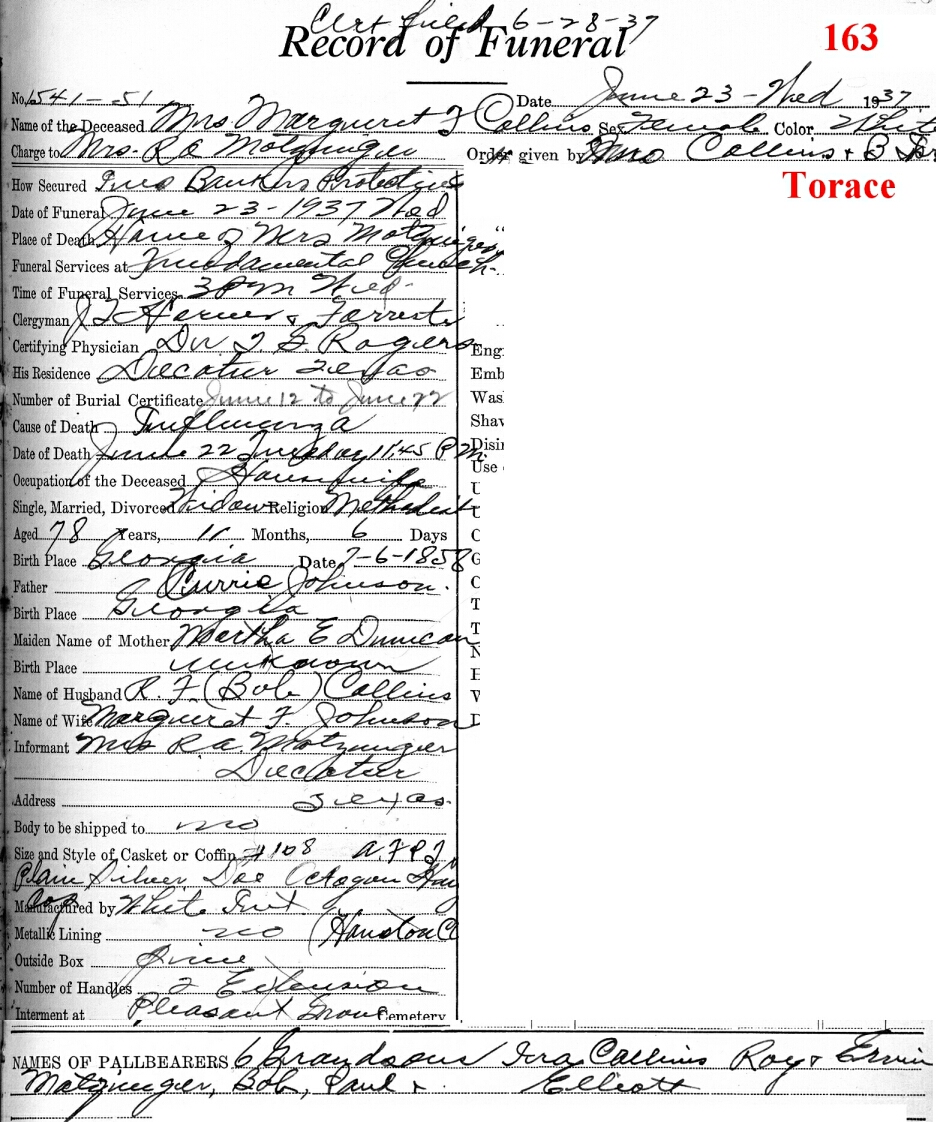 Cert filed 6-28-37
Record of Funeral
163
No. 1541-51 Date June 23 - Wed 1937
Name of the Deceased Mrs. Marguret F Collins Sex Female Color White
Charge to Mrs. RA Motzninger Order given by Mrs Collins + B
Torace
How Secured Bankers Protective
Date of Funeral June 23-1937 Wed
Place of Death Home of Mrs Motzninger
Funeral Services at Fundamental Church
Time of Funeral Services 3 Pm Wed-
Clergyman J T Harner + Forrester
Certifying Physician Dr Rogers
His Residence Decatur Texas
Number of Burial Certificate June 12 to June 22
Cause of Death Influenza
Date of Death June 22 Tuesday 11:45 P M.
Occupation of the Deceased Housewife
Single, Married, Divorced Widow Religion Methodist
Aged 78 Years, 11 Months, 6 Days
Birth Place Georgia Date 7-6-1858
Father Currie Johnson.
Birth Place Georgia
Maiden Name of Mother Martha E Duncan
Birth Place unknown
Name of Husband R. F. (Bob) Collins
Name of Wife Marguret F. Johnson
Informant Mrs RA. Motzninger
Decatur
Address Texas.
Body to be shipped to no
Size and Style of Casket or Coffin #108
Plain Silver Doe Octogon
top
Manufactured by White
Metallic Lining no (Houston
Outside Box Pine
Number of Handles 2 Extension
Interment at Pleasant Grove Cemetery
Eng
Emb
Was
Shav
Disi
Use
NAMES OF PALLBEARERS 6 Grandsons Ira Collins Roy + Ervin
Motzninger, Bob, Paul + Elliott